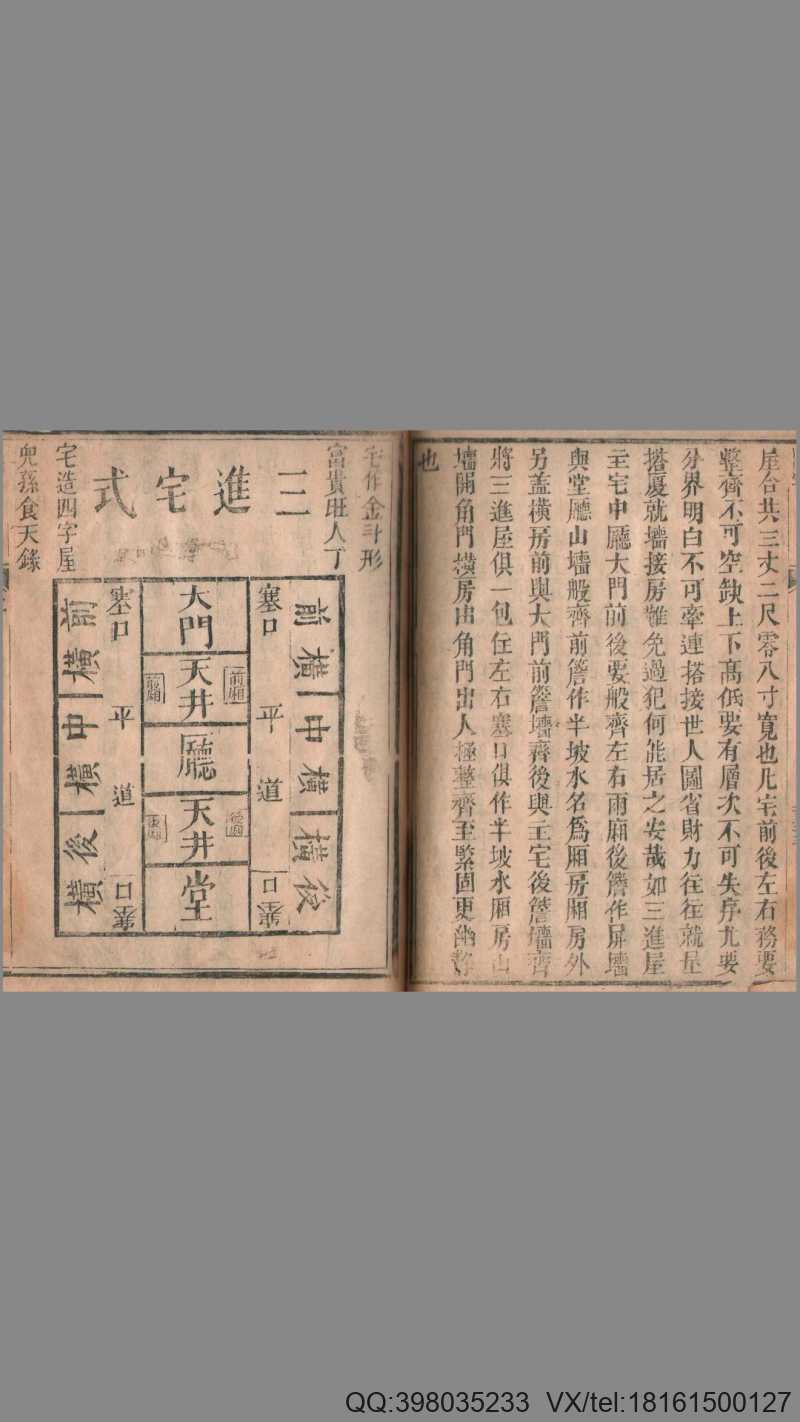 屋合共三丈二尺零八寸寬也凡宅前後左右務要
整齊不可空缺上下高低要有層次不可失序尤要
分界明白不可牽連搭接世人圖省財力往往就屋
搭厦就墻接房難免過犯何能居之安哉如三進屋
主宅中廳大門前後要般齊左右兩廂後簷作屏墻
與堂廳山墻般齊前簷作半坡水名爲厢房厢房外
另蓋橫房前與大門前簷墻齊後與主宅後簷墻齊
將三進屋俱一包在左右塞口俱作半坡水厢房山
墻開角門橫房出角門出人極整齊至緊固更幽靜
也
宅作金斗形
富貴旺人丁
三進宅式
宅造四字屋
兒孫食天祿
前橫
中橫
橫後
塞口
平道
塞口
大門
天井
前廂
前廂
廳
天井
堂
塞口
平道
塞口
前橫
中橫
後橫
QQ:398035233 VX/tel:18161500127